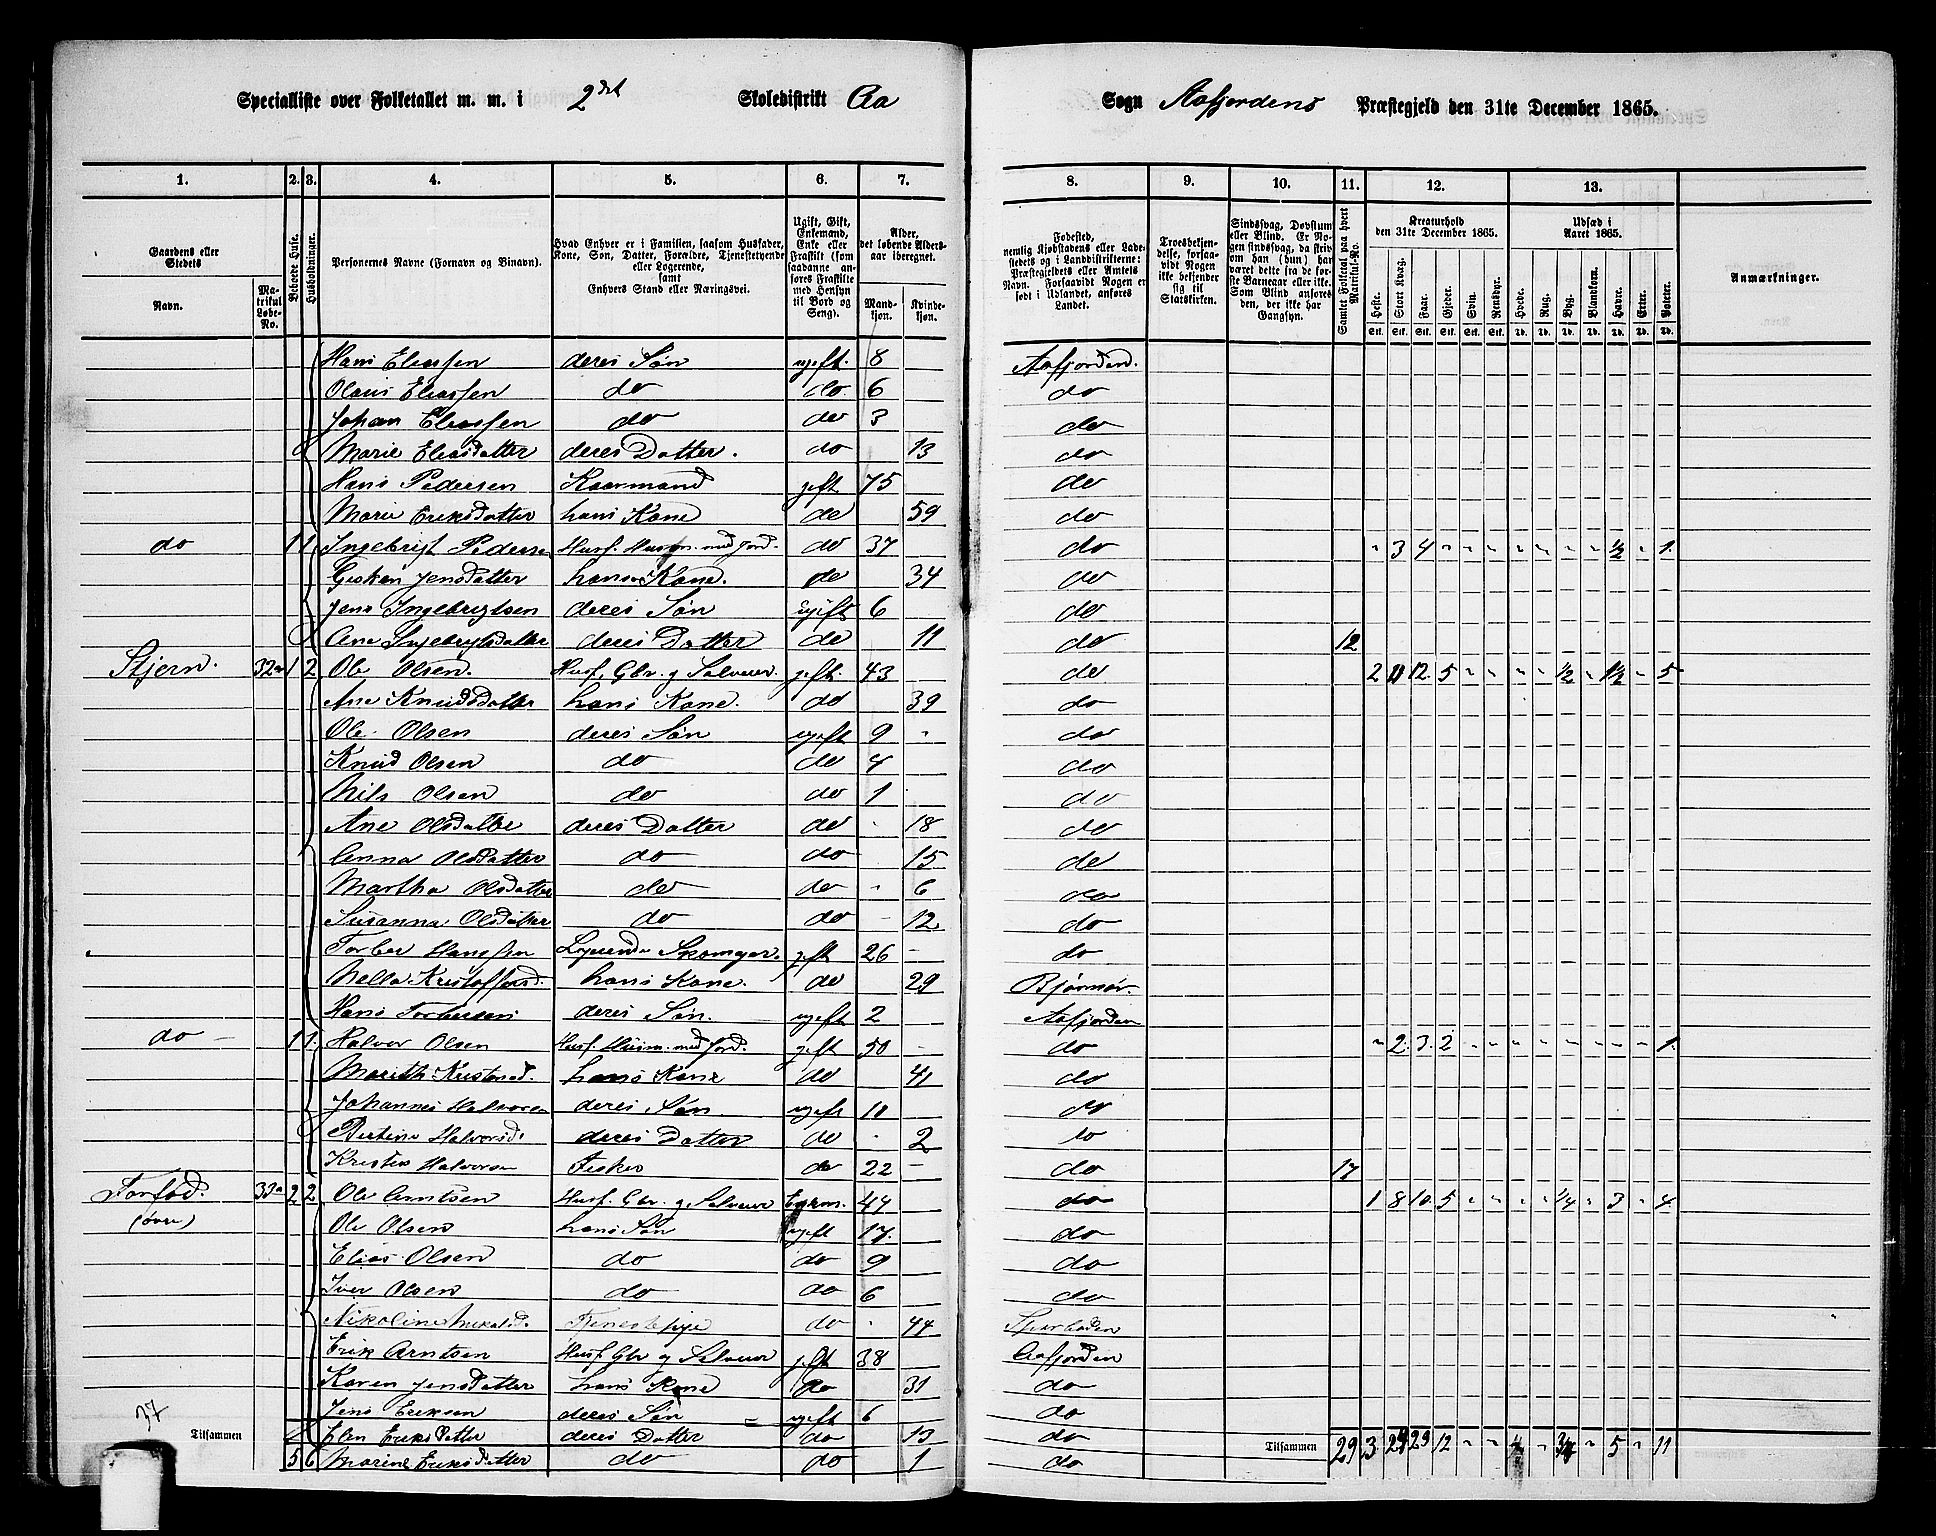 Specialliste over Folketallet m. m. i 2det Skoledistrikt Aa Sogn Aafjordens Præstegjeld den 31te December 1865.
1. 2. 3. 4. 5. 6. 7. 8. 9. 10. 11. 12. 13.
Gaardens eller Stedets Navn. Matrikul Løbe-No. Beboede Huse. Husholdninger. Personernes Navne (Fornavn og Binavn). Hvad Enhver er i Familien, saasom Husfader, Kone, Søn, Datter, Forældre, Tjenestetyende eller Logerende, samt Enhvers Stand eller Næringsvei. Ugift, Gift, Enkemand, Enke eller Fraskilt (som saadanne anføres Fraskilte med Hensyn til Bord og Seng). Alder, det løbende Alders-aar iberegnet. Mandkjøn. Kvindekjøn. Fødested, nemlig Kjøbstadens eller Ladestedets og i Landdistrikterne: Præstegjeldets eller Amtets Navn. Forsaavidt Nogen er født i Udlandet, anføres Landet. Troesbekjendelse, forsaavidt Nogen ikke bekjender sig til Statskirken. Sindssvag, Døvstum eller Blind. Er Nogen sindssvag, da skrives om han (hun) har været dette fra de første Barneaar eller ikke. Som Blind anføres den, der ikke har Gangsyn. Samlet Folketal paa hvert Matrikul-No. Kreaturhold den 31te December 1865. Heste. Stort Kvæg. Faar. Gjeder. Svin. Rensdyr. Udsæd i Aaret 1865. Hvede. Rug. Byg. Blandkorn. Havre. Erter. Poteter. Anmærkninger.
Hans Eliassen deres Søn ugift. 8 Aafjorden.
Olaus Eliassen do do. 6 do
Johan Eliassen do do 3 do
Marie Eliasdatter deres Datter. do 13 do
Hans Pedersen Kaarmand gift 75 do
Marie Eriksdatter hans Kone do 59 do
do 1 1 Ingebrigt Pedersen Husf. Husm. med Jord. do 37 do " 3 4 " " " " " " " ½ " 1.
Gesken Jensdatter hans Kone. do 34 do
Jens Ingebrigtsen deres Søn ugift 6 do
Ane Ingebrigtsdatter deres Datter do 11 do 12
Stjern. 32a 1 2 Ole Olsen. Husf. Gbr. g Selveier. gift. 43 do 2 11 12. 5 " " " " ½ " 1½ " 5
Ane Knudsdatter hans Kone. do 39 do
Ole Olsen deres Søn ugift 9 " do
Knud Olsen do do 4 do
Nils Olsen do do 1 do
Ane Olsdatter deres Datter do " 18 do
Anna Olsdatter do do 15 do
Martha Olsdatter do do " 6 do
Susanna Olsdatter do do " 12 do
Torber Hanssen Logerende Skomager. gift 26 " do
Nella Kristoffersd. hans Kone. do 29 Bjørnør.
Hans Torbersen deres Søn. ugift 2 Aafjorden
do 1 1. Halvor Olsen Husf. Husm. med Jord. gift 50 " do " 2. 3. 2 " " " " " " " " 1.
Marith Kristensd. hans Kone do 41 do
Johannes Halvorsen deres Søn. ugift 10 do
Bertine Halvorsd. deres Datter do " 2 do
Kristen Halvorsen Fisker do 22 " do 17
Forfod. 33a 2 2 Ole Arntsen Husf. Gbr. g. Selveier Enkem. 44 do 1 8 10. 5 " " " " ¼ " 3 " 4.
(øvre) Ole Olsen hans Søn ugift 17. do
Elias Olsen do do 9 do
Iver Olsen do do 6 do
Nikoline Mikalsd. Tjenestepige do " 44 Stadsbøden
Erik Arntsen Husf. Gbr g Selveier gift 38 Aafjorden
Karen Jensdatter hans Kone do 31 do
Jens Eriksen deres Søn ugift 6 do
Elen Eriksdatter deres Datter do 13 do
37 Tilsammen 5 6 Marine Eriksdatter do do 1 do Tilsammen 29 3 24 29 12 " " " ¾ " 5 " 11